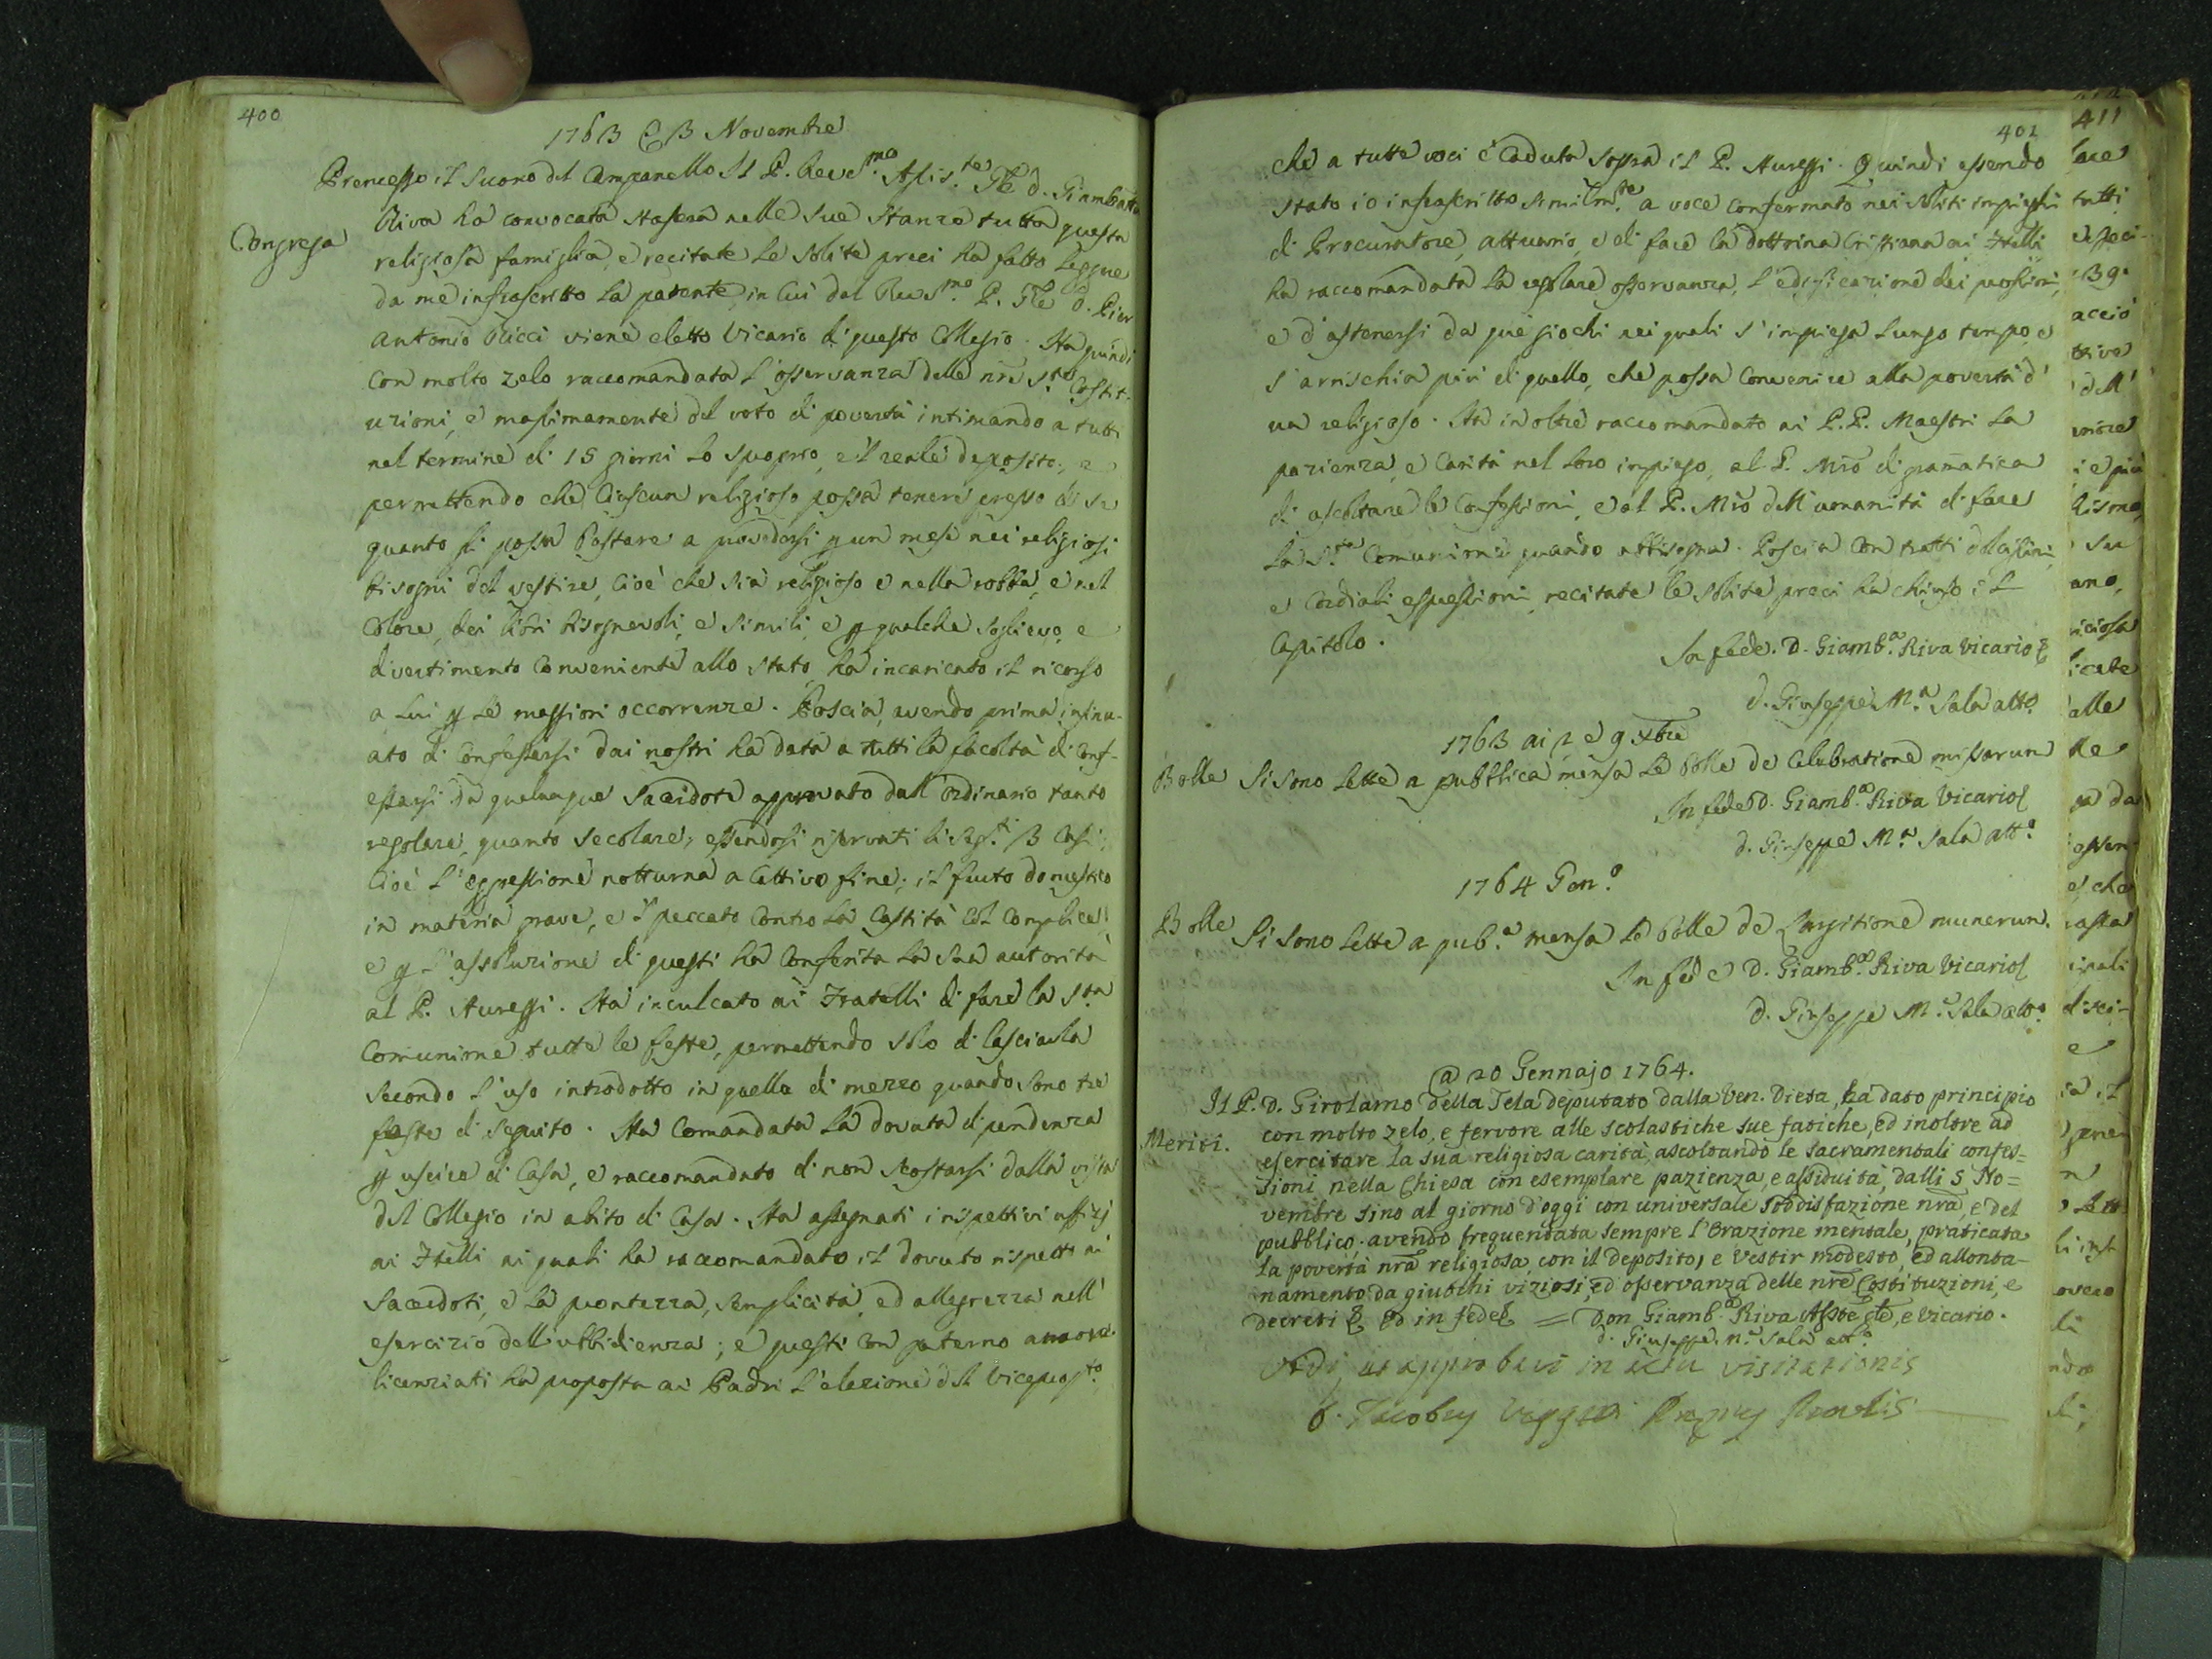 400
1763 @ 3 Novembre
Premesso il suono del Campanello Il P. Revd.mo Assis.te Gle d. Giambatta
Riva ha convocata stasera nelle sue stanze tutta questa
Congrega
religiosa famiglia, e recitate le solite preci ha fatto leggere
da me infrascritto la patente, in cui dal Rev.mo P. Gle d. Pier
Antonio Ricci viene eletto Vicario di questo Collegio. Ha quindi
con molto zelo raccomandata l'osservanza delle nre s.te Costit-
uzioni, e massimamente del voto di povertà intimando a tutti
nel termine di 15 giorni lo sproprio, e il reale deposito, e
permettendo che ciascun religioso possa tenere presso di se
quanto gli possa bastare a provedersi p un mese nei religiosi
bisogni del vestire, cioè che sia religioso e nella robba, e nel
colore, dei libri bisognevoli, e simili, e p qualche soglievo, e
divertimento conveniente allo stato, ha incaricato il ricorso
a lui p le maggiori occorrenze. Poscia, avendo prima insinu-
ato di confessarsi dai nostri ha data a tutti la facoltà di conf-
essarsi da qualunque Sacerdote approvato dall'ordinario tanto
regolare, quanto secolare, essendosi riservati li seg.ti 3 casi:
cioè l'eggressione notturna a cattivo fine; il furto domestico
in materia grave, e il peccato contro la castità col complice;
e p l'assoluzione di questi ha conferita la sua autorità
al P. Aureggi. Ha inculcato ai Fratelli di fare la S.ta
Comunione tutte le feste, permettendo solo di lasciarla
secondo l'uso introdotto in quella di mezzo quando sono tre
feste di seguito. Ha comandata la dovuta dipendenza
p uscire di Casa, e raccomandato di non scostarsi dalla vista
del Collegio in abito di Casa. Ha assegnati i rispettivi uffizj
ai Ftelli ai quali ha raccomandato il dovuto rispetto ai
Sacerdoti, e la prontezza, semplicità, ed allegrezza nell'
esercizio dell'ubbidienza; e questi con paterno amore
licenziati ha proposta ai Padri l'elezione del Viceprep.to
401
che a tutte voci è caduta sopra il P. Aureggi. Quindi essendo
stato io infrascritto similm.te a voce confermato nei soliti impieghi
di Procuratore, attuario, e di fare la dottrina Cristiana ai Ftelli
ha raccomandata la regolare osservanza, l'edificazione dei prossimi,
e d'astenersi da que giochi nei quali s'impiega lungo tempo, e
s'arrischia più di quello, che possa convenire alla povertà d'
un religioso. Ha in oltre raccomandato ai P.P. Maestri la
pazienza, e carità nel loro impiego, al P. Mro di gramatica
di ascoltare le Confessioni, e al P. Mro dell'umanità di fare
la S.ta Comunione quando abbisogna. Poscia con tratti dolcissimi,
e cordiali espressioni, recitate le solite preci ha chiuso il
Capitolo.
In fede. D. Giamb.a Riva Vicario
d. Giuseppe M.a Sala atto.
1763 ai 2 e 9 Xbre
Bolle Si sono lette a pubblica mensa le bolle de Celebratione missarum
In fede D. Giamb.a Riva Vicario
d. Giuseppe M.a Sala att.o
1764 Gen.o
Bolle Si sono lette a pub.a mensa le bolle de Largitione munerum.
In fede D. Giamb.a Riva Vicario
d. Giuseppe M.a Sala atto.
@ 20 Gennajo 1764.
Il P. D. Girolamo della Tela deputato dalla Ven. Dieta, ha dato principio
con molto zelo, e fervore alle scolastiche sue fatiche, ed inoltre ad
Meriti.
esercitare la sua religiosa carità, ascoltando le sacramentali confes=
sioni nella Chiesa con esemplare pazienza, e assiduità, dalli 5 No=
vembre sino al giorno d'oggi con universale soddisfazione nra, e del
pubblico. avendo frequentata sempre l'Orazione mentale, praticata
la povertà nra religiosa, con il deposito, e vestir modesto, ed allonta-
namento da giuochi viziosi, ed osservanza delle nre Costituzioni, e
decreti ed in fede = Don Giamb.a Riva Asste Gle, e Vicario.
d. Giuseppe M.a Sala att.o
Vidi, et approbavi in actu visitationis
D. Jacobus
411